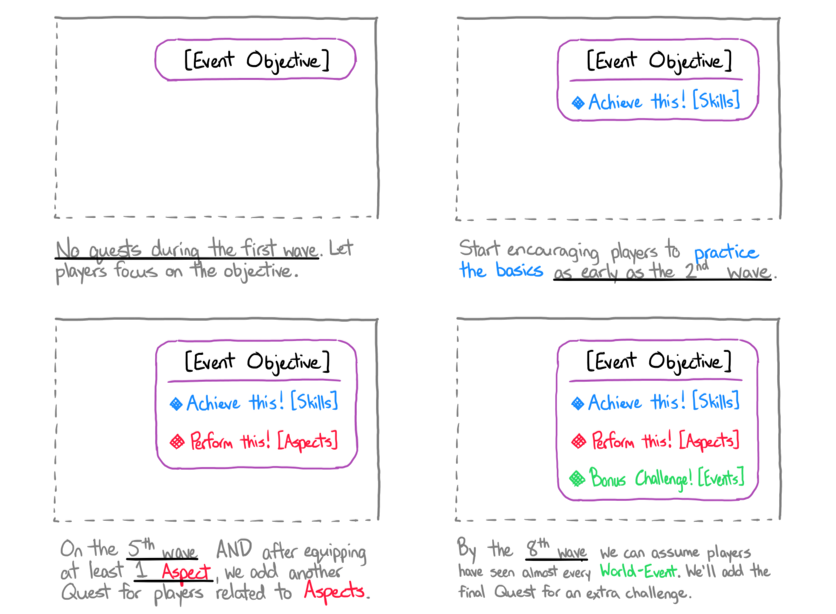 [Event Objective]
No quests during the first wave. Let
players focus on the objective.
[Event Objective]
Achieve this! [Skills]
Start encouraging players to practice
the basics as early as the 2nd wave.
[Event Objective]
Achieve this! [Skills]
Perform this! [Aspects]
On the 5th wave AND after equipping
at least 1 Aspect, we add another
Quest for players related to Aspects.
[Event Objective]
Achieve this! [Skills]
Perform this! [Aspects]
Bonus Challenge! [Events]
By the 8th wave we can assume players
have seen almost every World-Event. We'll add the
final Quest for an extra challenge.